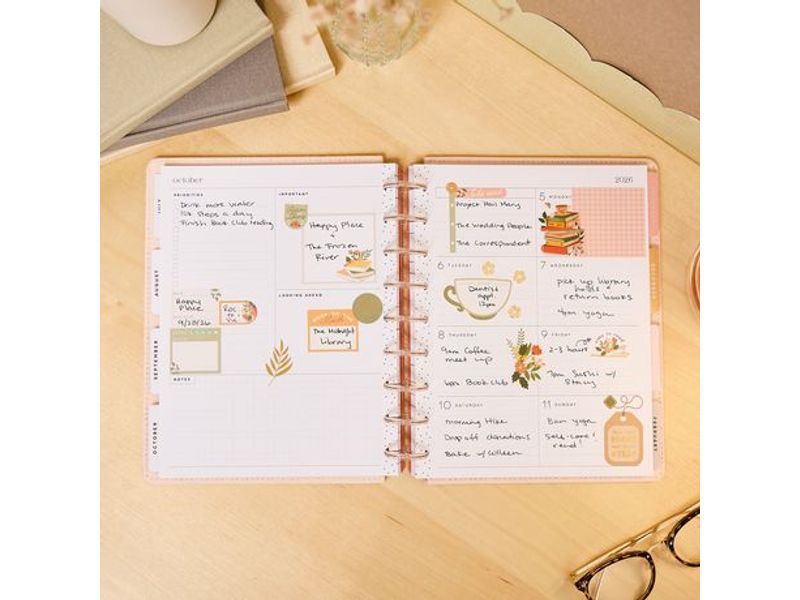 october
PRIORITIES
Drink more water
10k steps a day
Finish Book Club reading
IMPORTANT
Happy Place
+
The Frozen
River
LOOKING AHEAD
The Midnight
Library
Happy
Place
9/20/26
NOTES
JULY
AUGUST
SEPTEMBER
OCTOBER
2026
Project Hail Mary
The Wedding People
The Correspondent
5 MONDAY
6 TUESDAY
Dentist
appt.
12pm
7 WEDNESDAY
pick up library
holds +
return books
4pm yoga
8 THURSDAY
9am Coffee
meet up
6pm Book Club
9 FRIDAY
2-3 hours
7pm Sushi w/
Stacey
10 SATURDAY
Morning Hike
Drop off donations
Bake w/
11 SUNDAY
8am yoga
Self-care +
read!